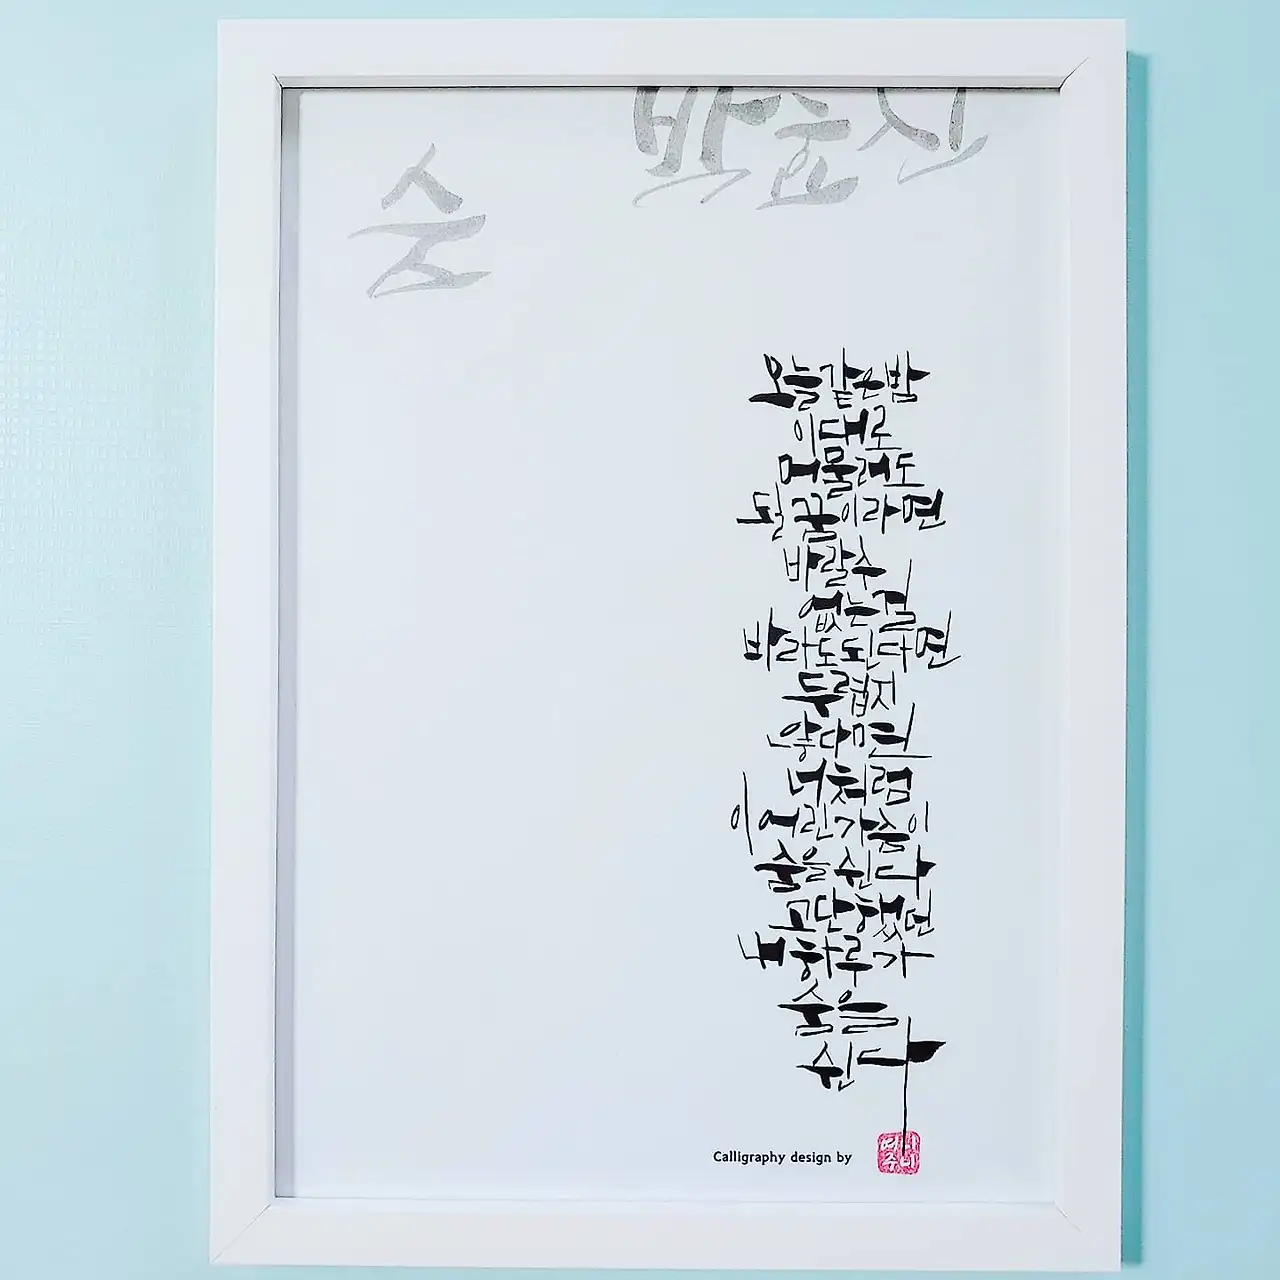 박효신
숨
오늘같은밤
이대로
머물러도
될꿈이라면
바랄수
없는걸
바라도된다면
두렵지
않다면
너처럼
이어린가슴이
숨을쉰다
고단했던
내하루가
숨을
쉰다
Calligraphy design by